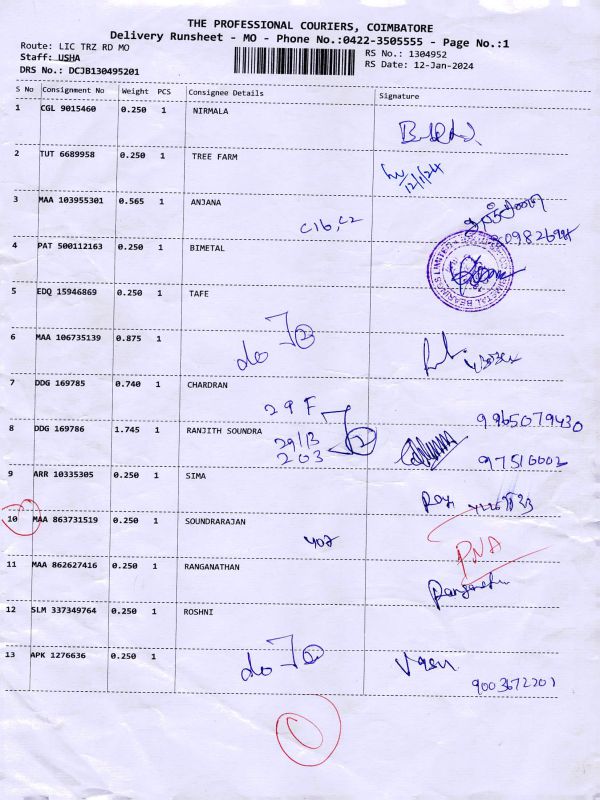 THE PROFESSIONAL COURIERS, COIMBATORE
Delivery Runsheet - MO - Phone No.:0422-3505555 - Page No.:1
Route: LIC TRZ RD MO
RS No.: 1304952
Staff: USHA
RS Date: 12-Jan-2024
DRS No.: DCJB130495201
S No Consignment No Weight PCS Consignee Details Signature
1 CGL 9015460 0.250 1 NIRMALA
2 TUT 6689958 0.250 1 TREE FARM
12/1/24
3 MAA 103955301 0.565 1 ANJANA
C16, C2
4 PAT 500112163 0.250 1 BIMETAL
5 EDQ 15946869 0.250 1 TAFE
6 MAA 106735139 0.875 1
do
7 DDG 169785 0.740 1 CHARDRAN
29 F
9965079430
8 DDG 169786 1.745 1 RANJITH SOUNDRA
29/B
203
2
9 ARR 10335305 0.250 1 SIMA
10 MAA 863731519 0.250 1 SOUNDRARAJAN
407
PNA
11 MAA 862627416 0.250 1 RANGANATHAN
12 SLM 337349764 0.250 1 ROSHNI
13 APK 1276636 0.250 1
do
9003672201